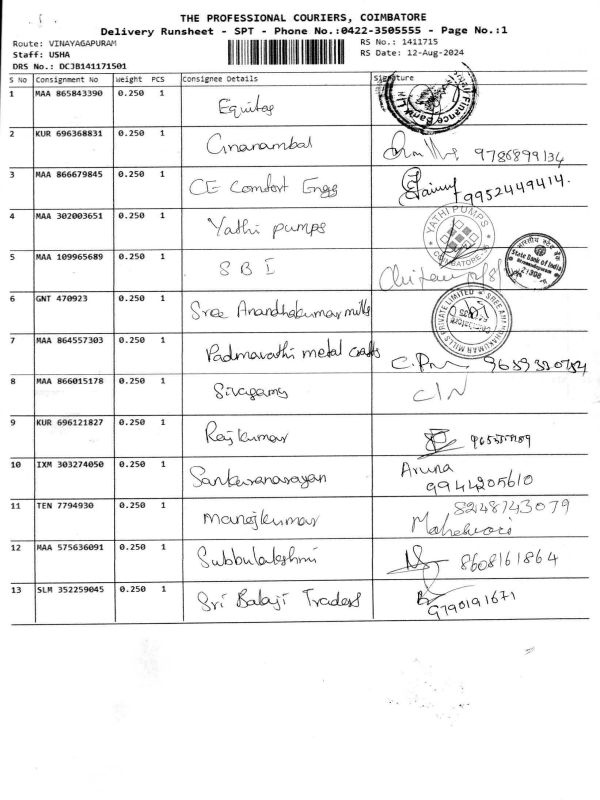 THE PROFESSIONAL COURIERS, COIMBATORE
Delivery Runsheet - SPT - Phone No.:0422-3505555 - Page No.:1
Route: VINAYAGAPURAM
Staff: USHA
DRS No.: DCJB141171501
RS No.: 1411715
RS Date: 12-Aug-2024
S No Consignment No Weight PCS Consignee Details Signature
1 MAA 865843390 0.250 1 Equitas
Finance Bank Ltd
2 KUR 696368831 0.250 1 Gnanambal 9786899134
3 MAA 866679845 0.250 1 CE Comfort Engg 9952449414.
4 MAA 302003651 0.250 1 Yathi pumps
YATHI PUMPS
COIMBATORE
5 MAA 109965689 0.250 1 SBI
State Bank of India
6 GNT 470923 0.250 1 Sree Anandhakumar mills
SREE ANANDHAKUMAR MILLS PRIVATE LIMITED
7 MAA 864557303 0.250 1 Padmavathi metal crafts
8 MAA 866015178 0.250 1 Sivagamy C/N
9 KUR 696121827 0.250 1 Rajkumar
10 IXM 303274050 0.250 1 Sankaranarayan Aruna
9944205610
11 TEN 7794930 0.250 1 Manojkumar 8248743079
Maheswari
12 MAA 575636091 0.250 1 Subbulakshmi 8608161864
13 SLM 352259045 0.250 1 Sri Balaji Traders
9790191671